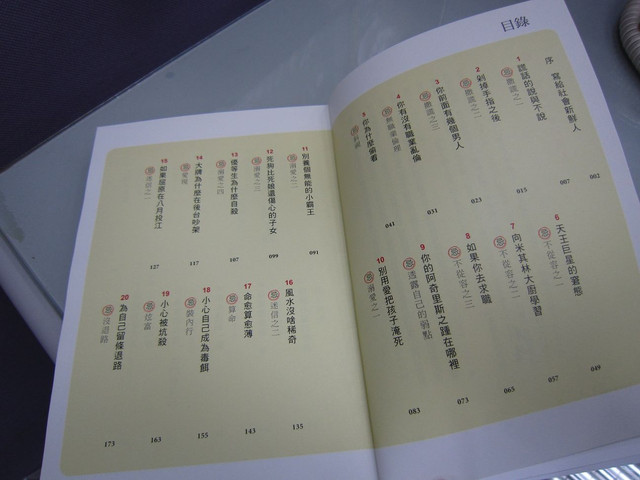 目錄
序 寫給社會新鮮人 002
1 謊話的說與不說 007
忌撒謊之一
2 剁掉手指之後 015
忌撒謊之二
3 你前面有幾個男人 023
忌撒謊之三
4 你有沒有職業亂倫 031
忌無職業倫理
5 你為什麼偷看 041
6 天王巨星的窘態 049
忌不從容之一
7 向米其林大廚學習 057
忌不從容之二
8 如果你去求職 065
忌不從容之三
9 你的阿奇里斯之踵在哪裡 073
忌透露自己的弱點
10 別用愛把孩子淹死 083
忌溺愛之一
11 別養個無能的小霸王 091
忌溺愛之二
12 死狗比死娘還傷心的子女 099
忌溺愛之三
13 優等生為什麼自殺 107
忌溺愛之四
14 大牌為什麼在後台吵架 117
15 如果屈原在八月投江 127
忌迷信之一
16 風水沒啥稀奇 135
忌迷信之二
17 命愈算愈薄 143
忌算命
18 小心自己成為毒餌 155
忌裝內行
19 小心被坑殺 163
忌炫富
20 為自己留條退路 173
忌沒退路